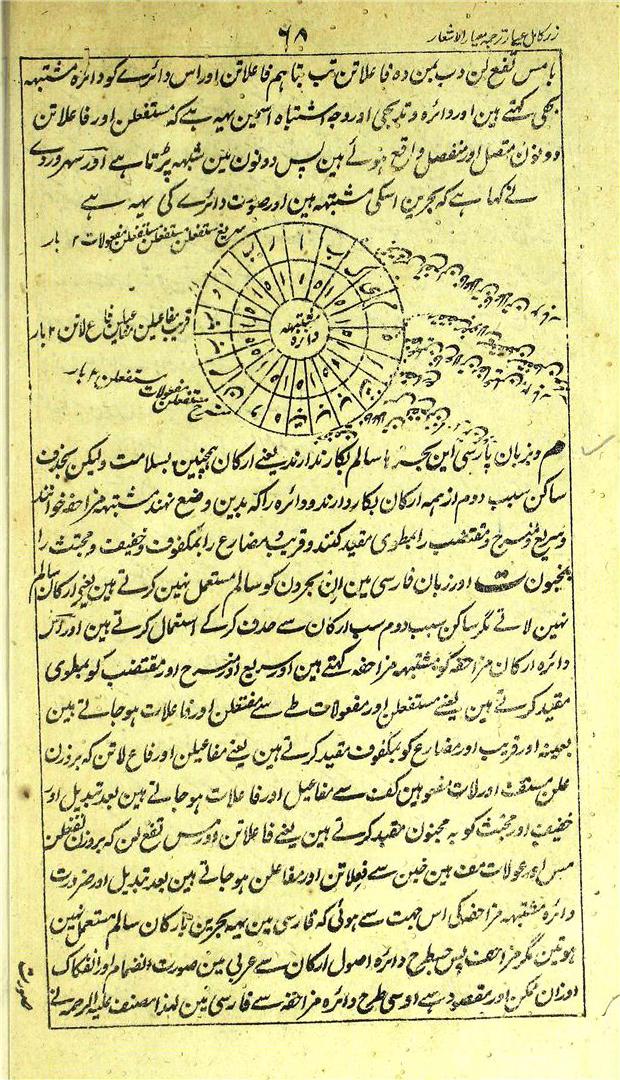 زر کامل عیار ترجمہ معیار الاشعار
۶۸
یا مس تفع لن دب بمن دہ فا علاتن تب بتا ہم فاعلاتن اور اس دائرے کو دائرہ مشتبہہ
بھی کہتے ہین اور دائرہ و تدریجی اور وجہ اشتباہ اسمین یہہ ہے کہ مستفعلن اور فاعلاتن
دونون متصل اور منفصل واقع ہوئے ہین پس دونون مین شبہہ پڑتا ہے اور سہروردی
نے کہا ہے کہ بحرین اسکی مشتبہہ ہین اور صورت دائرے کی یہہ ہے
سریع مستفعلن مستفعلن مفعولات ۲ بار
قریب مفاعیلن مفاعیلن فاع لاتن ۲ بار
منسرح مستفعلن مفعولات مستفعلن ۲ بار
دائرہ مشتبہہ
ھم و بزبان پارسی این بحرہا سالم بکار ندارند یعنے ارکان ہمچنین بسلامت ولیکن بحذف
ساکن سبب دوم از ہمہ ارکان بکار دارند و دائرہ را کہ بدین وضع نہند مشتبہہ مزاحفہ خوانند
و سریع و منسرح و مقتضب را بمطوی مقید کنند و قریب و مضارع را بمکفوف و خفیف و مجتث را
بمخبون ت اور زبان فارسی مین ان بحرون کو سالم مستعمل نہین کرتے ہین یعنے ارکان سالم
نہین لاتے مگر ساکن سبب دوم سب ارکان سے حذف کرکے استعمال کرتے ہین اور اس
دائرہ ارکان مزاحفہ کو مشتبہہ مزاحفہ کہتے ہین اور سریع اور منسرح اور مقتضب کو بمطوی
مقید کرتے ہین یعنے مستفعلن اور مفعولات طے سے مفتعلن اور فاعلات ہو جاتے ہین
بعینہ اور قریب اور مضارع کو بمکفوف مقید کرتے ہین یعنے مفاعیلن اور فاع لاتن کہ بروزن
علن مستف اور لات مفعو ہین کف سے مفاعیل اور فاعلات ہو جاتے ہین بعد تبدیل اور
خفیف اور مجتث کو بہ مخبون مقید کرتے ہین یعنے فاعلاتن اور مس تفع لن کہ بروزن تفعلن
مس اور عولات مف ہین خبن سے فعلاتن اور مفاعلن ہو جاتے ہین بعد تبدیل اور ضرورت
دائرہ مشتبہہ مزاحفہ کی اس جہت سے ہوئی کہ فارسی مین یہہ بحرین بارکان سالم مستعمل نہین
ہوتین مگر مزاحف پس جسطرح دائرہ اصول ارکان سے عربی مین صورت انضمام اور انفکاک
اوزان ممکن اور مقصود ہے اوسی طرح دائرہ مزاحفہ سے فارسی مین لہذا مصنف علیہ الرحمہ نے
صورت